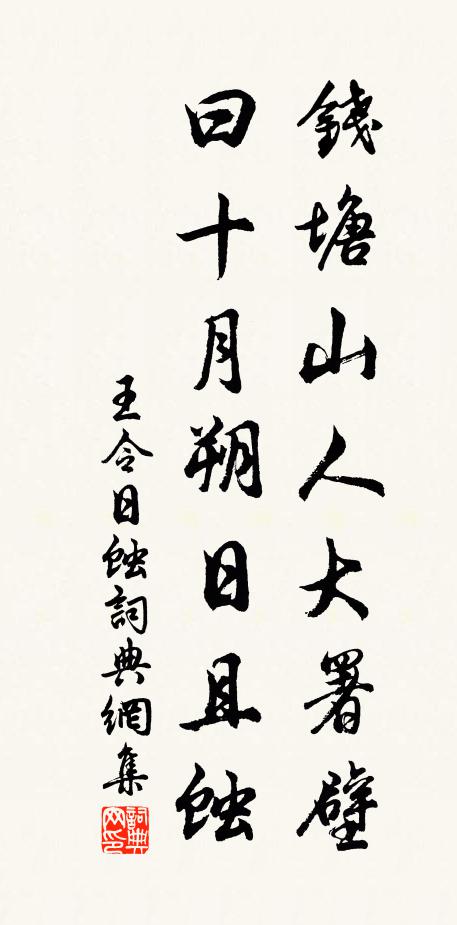 錢塘山人大署壁
曰十月朔日且蝕
王令日蝕詞典網集
詞典網印